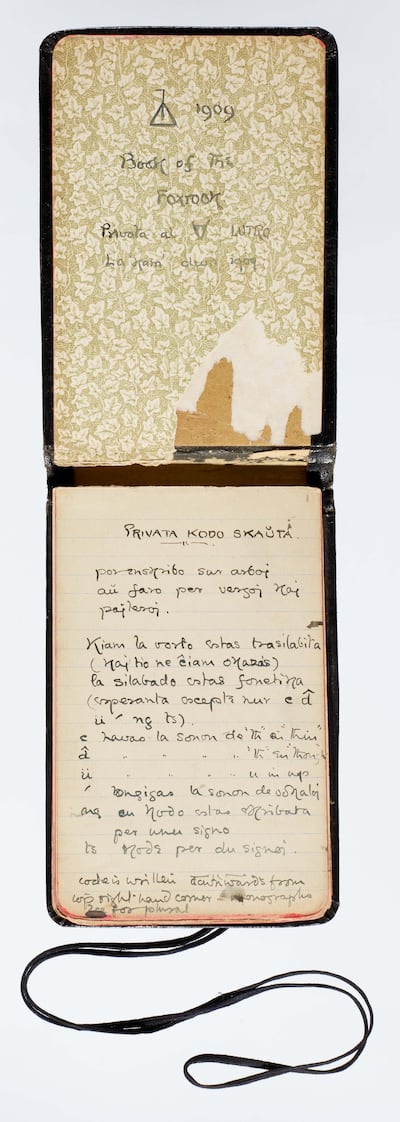 1909
Book of The
Foxrook
Privata al LUTRO
La Kam 1909
PRIVATA KODO SKAŬTA.
por enskribo sur arboj
aŭ faro per vergoj kaj
pajleroj.
Kiam la vorto estas trasilabita
(kaj tio ne ĉiam okazas)
la silabado estas fonetika
(esperanta escepte nur c d̂
ü ´ ng ts).
c havas la sonon de "th" en "thin"
d̂ " " " " "th" en "though"
ü " " " " u in up
´ longigas la sonon de vokaloj
ng en kodo estas skribata
per unu signo
ts kode per du signoj.
code is written downwards from
top right-hand corner - monographs
for plural